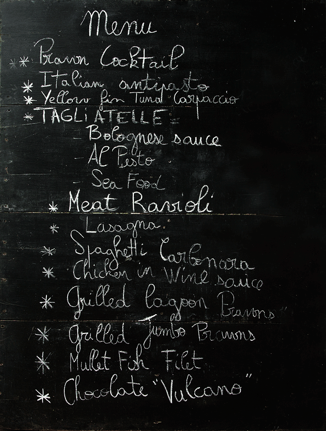 Menu
* Prawn Cocktail
* Italian antipasto
* Yellow fin Tuna Carpaccio
* TAGLIATELLE =
- Bolognese sauce
- Al Pesto
- Sea Food
* Meat Ravioli
* Lasagna
* Spaghetti Carbonara
* Chicken in Wine sauce
* Grilled lagoon Prawns
* Grilled Jumbo Prawns
* Mullet Fish Filet
* Chocolate "Vulcano"